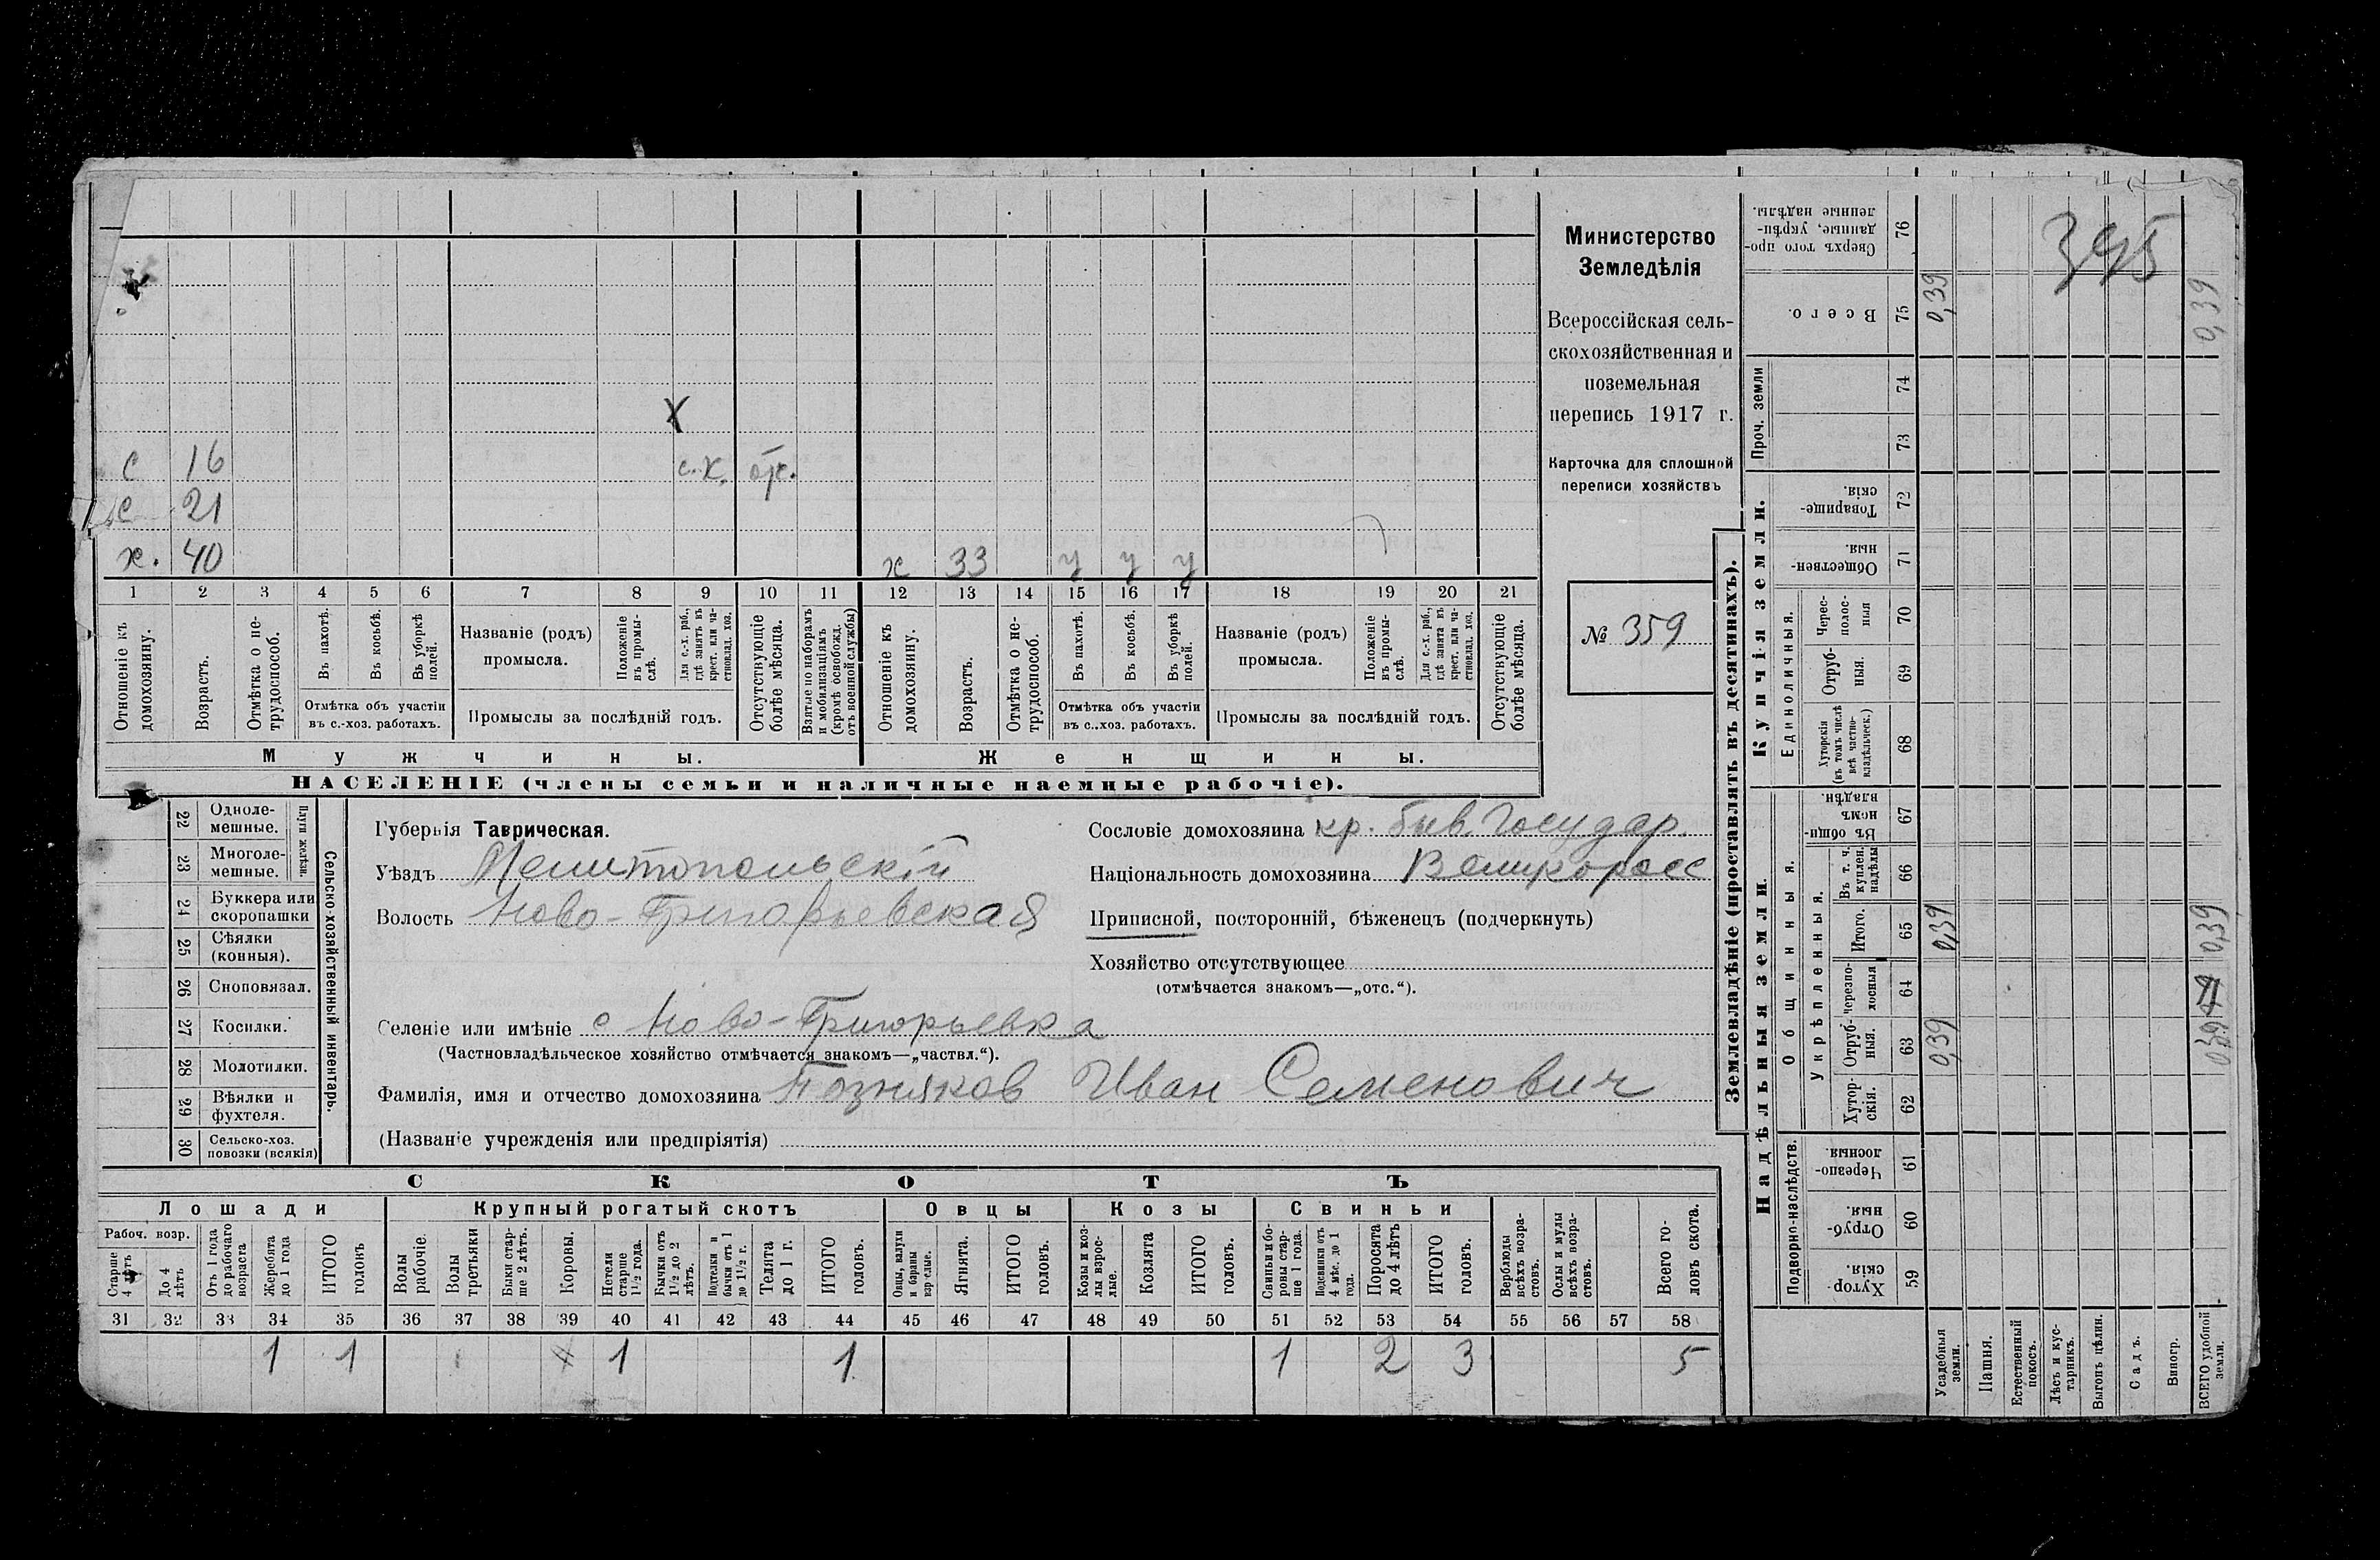 395
Министерство
Земледѣлія
Всероссійская сель-
скохозяйственная и
поземельная
перепись 1917 г.
Карточка для сплошной
переписи хозяйствъ
№ 359
х
с 16 с.х. отс.
с 21
х. 40 х 33 у у у
1 2 3 4 5 6 7 8 9 10 11 12 13 14 15 16 17 18 19 20 21
Отношеніе къ домохозяину.
Возрастъ.
Отмѣтка о не-трудоспособ.
Въ пахотѣ.
Въ косьбѣ.
Въ уборкѣ полей.
Отмѣтка объ участіи
въ с.-хоз. работахъ.
Названіе (родъ)
промысла.
Положеніе въ промы-слѣ.
Для с.-х. раб., гдѣ занятъ въ крест. или ча-стновлад. хоз.
Промыслы за послѣдній годъ.
Отсутствующіе болѣе мѣсяца.
Взятые по наборамъ и мобилизаціямъ (кромѣ освобожд. отъ военной службы)
Отношеніе къ домохозяину.
Возрастъ.
Отмѣтка о не-трудоспособ.
Въ пахотѣ.
Въ косьбѣ.
Въ уборкѣ полей.
Отмѣтка объ участіи
въ с..хоз. работахъ.
Названіе (родъ)
промысла.
Положеніе въ промы-слѣ.
Для с.-х. раб., гдѣ занята въ крест. или ча-стновлад. хоз.
Промыслы за послѣдній годъ.
Отсутствующіе болѣе мѣсяца.
Мужчины. Женщины.
НАСЕЛЕНІЕ (члены семьи и наличные наемные рабочіе).
Сельско-хозяйственный инвентарь.
Плуги желѣзн.
22 Одноле-мешные.
23 Многоле-мешные.
24 Буккера или скоропашки
25 Сѣялки (конныя).
26 Сноповязал.
27 Косилки.
28 Молотилки.
29 Вѣялки и фухтеля.
30 Сельско-хоз. повозки (всякія)
Губернія Таврическая.
Уѣздъ Мелитопольскій
Волость Ново-Григорьевская
Сословіе домохозяина кр. быв. Государ.
Національность домохозяина Великоросс
Приписной, посторонній, бѣженецъ (подчеркнуть)
Хозяйство отсутствующее
(отмѣчается знакомъ—„отс.“).
Селеніе или имѣніе с Ново-Григорьевка
(Частновладѣльческое хозяйство отмѣчается знакомъ—„частвл.“).
Фамилія, имя и отчество домохозяина Позняков Иван Семенович
(Названіе учрежденія или предпріятія)
СКОТЪ
Лошади Крупный рогатый скотъ Овцы Козы Свиньи
Рабоч. возр.
Старше 4 лѣтъ
До 4 лѣтъ
Отъ 1 года до рабочаго возраста
Жеребята до 1 года
ИТОГО головъ
Волы рабочіе.
Волы третьяки
Быки стар-ше 2 лѣтъ.
Коровы.
Нетели старше 1½ года.
Бычки отъ 1½ до 2 лѣтъ.
Подтелки и бычки отъ 1 до 1½ г.
Телята до 1 г.
ИТОГО головъ.
Овцы, валухи и бараны взрослые.
Ягнята.
ИТОГО головъ.
Козы и коз-лы взрос-лые.
Козлята
ИТОГО головъ.
Свиньи и бо-ровы стар-ше 1 года.
Подсвинки отъ 4 мѣс. до 1 года.
Поросята до 4 лѣтъ
ИТОГО головъ.
Верблюды всѣхъ возра-стовъ.
Ослы и мулы всѣхъ возра-стовъ.
Всего го-ловъ скота.
31 32 33 34 35 36 37 38 39 40 41 42 43 44 45 46 47 48 49 50 51 52 53 54 55 56 57 58
1 1 1 1 1 2 3 5
Землевладѣніе (проставлять въ десятинахъ).
Надѣльныя земли. Купчія земли. Проч. земли
Подворно-наслѣдств.
Общинныя.
Укрѣпленныя.
Единоличныя.
Хутор-скія. 59
Отруб-ныя. 60
Черезпо-лосныя. 61
Хутор-скія. 62
Отруб-ныя. 63
Черезпо-лосныя 64
Итого. 65
Въ т. ч. куплен. надѣлы 66
Въ общин-номъ владѣн. 67
Хуторскія (въ томъ числѣ всѣ частно-владѣльческ.) 68
Отруб-ныя. 69
Черес-полос-ныя 70
Обществен-ныя. 71
Товарище-скія. 72
73
74
Всего. 75
Сверхъ того про-данные, укрѣп-ленные надѣлы. 76
Усадебныя земли. 0,39 0,39 0,39
Пашня.
Естественный покосъ.
Лѣсъ и кус-тарникъ.
Выгонъ цѣлин.
Садъ.
Виногр.
ВСЕГО удобной земли. 0,39 0,39 0,39